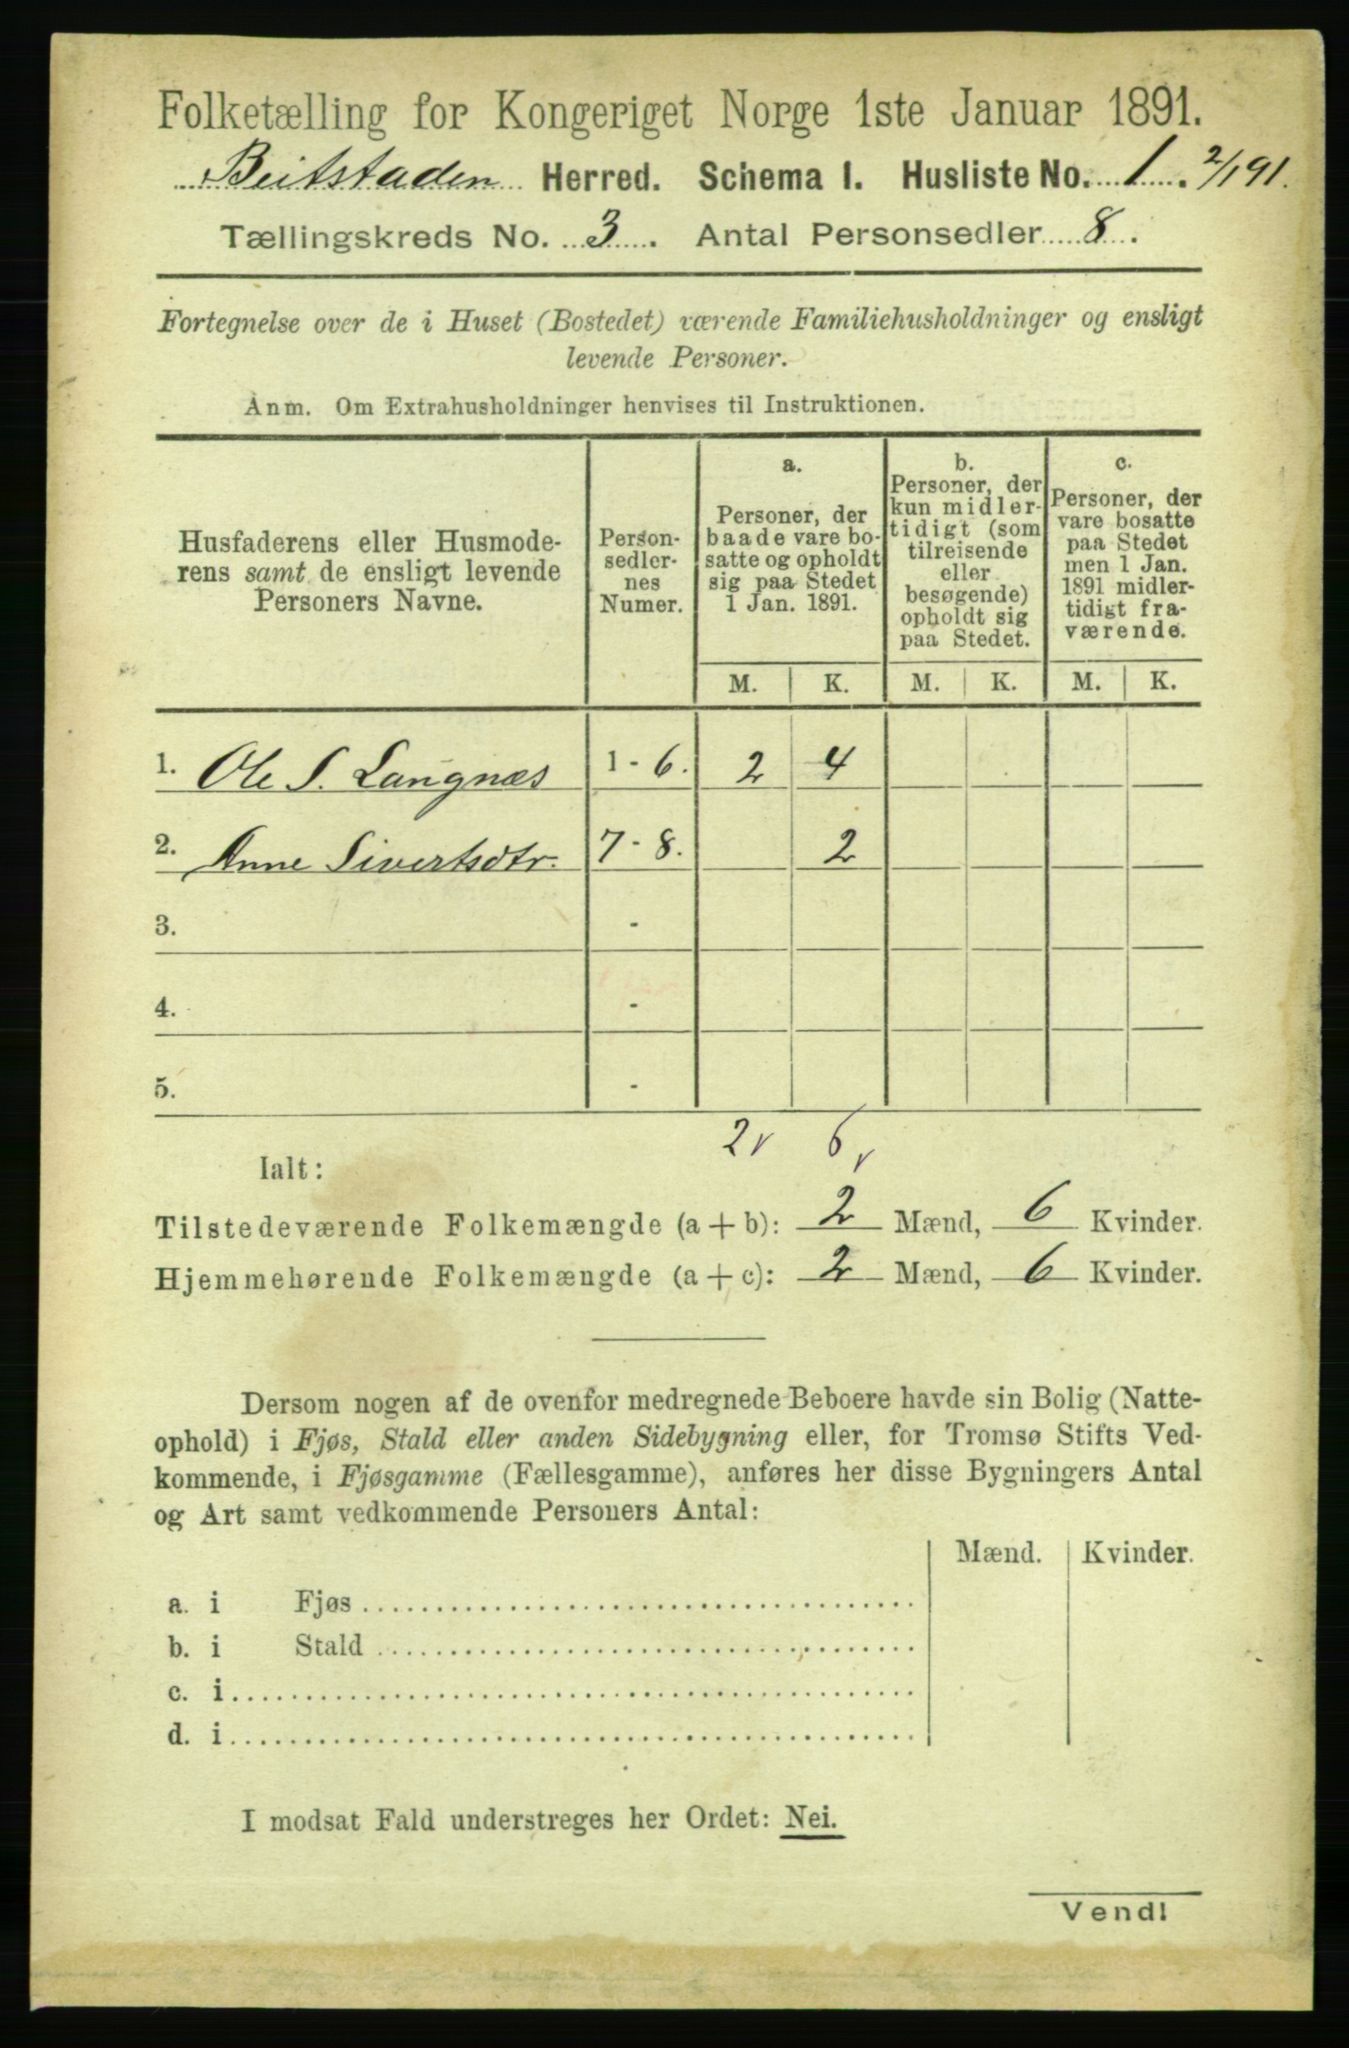 Folketælling for Kongeriget Norge 1ste Januar 1891.
Beitstaden Herred. Schema I. Husliste No. 1. 2/1 91.
Tællingskreds No. 3. Antal Personsedler 8.
Fortegnelse over de i Huset (Bostedet) værende Familiehusholdninger og ensligt
levende Personer.
Anm. Om Extrahusholdninger henvises til Instruktionen.
Husfaderens eller Husmode-
rens samt de ensligt levende
Personers Navne.
Person-
sedler-
nes
Numer.
a.
Personer, der
baade vare bo-
satte og opholdt
sig paa Stedet
1 Jan. 1891.
b.
Personer, der
kun midler-
tidigt (som
tilreisende
eller
besøgende)
opholdt sig
paa Stedet.
c.
Personer, der
vare bosatte
paa Stedet
men 1 Jan.
1891 midler-
tidigt fra-
værende.
M. K. M. K. M. K.
1. Ole S. Langnæs 1 - 6. 2 4
2. Anne Sivertsdtr. 7 - 8. 2
3. -
4. -
5. -
2 6
Ialt:
Tilstedeværende Folkemængde (a + b): 2 Mænd, 6 Kvinder.
Hjemmehørende Folkemængde (a + c): 2 Mænd, 6 Kvinder.
Dersom nogen af de ovenfor medregnede Beboere havde sin Bolig (Natte-
ophold) i Fjøs, Stald eller anden Sidebygning eller, for Tromsø Stifts Ved-
kommende, i Fjøsgamme (Fællesgamme), anføres her disse Bygningers Antal
og Art samt vedkommende Personers Antal:
Mænd. Kvinder.
a. i Fjøs
b. i Stald
c. i
d. i
I modsat Fald understreges her Ordet: Nei.
Vend!